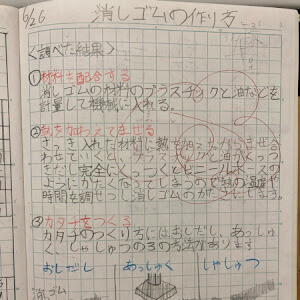 6/26 消しゴムの作り方
＜調べた結果＞
①材料を配合する
消しゴムの材料のプラスチックと油などを
計量して機械に入れる。
②熱を加わってまぜる
さっき入れた材料に熱を加えながらまぜる
わせていくと、プラスチックと油がくっつ
きだし完全にくっつくとビニールホースの
ようにかたくなってしまうので熱の温度や
時間を調せつし消しゴムのかたさにします。
③カタチをつくる
カタチのつくり方にはおしだし、あっしゅ
く、しゃしゅつの3の方法があります
おしだし あっしゅく しゃしゅつ
消しゴム